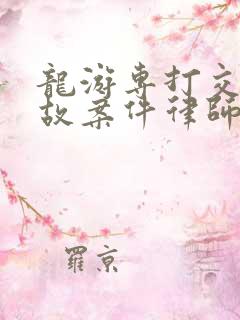 龍游專打交
故案件律師
羅京